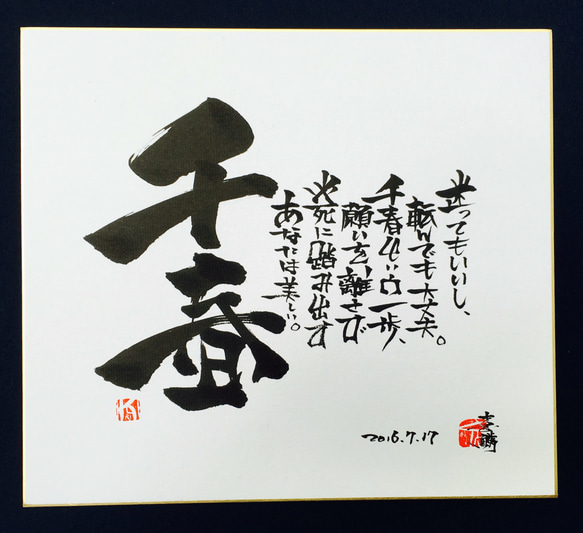 千春
迷ってもいいし、
転んでも大丈夫。
千春らしい一歩、
願いを離さず
必死に踏み出す
あなたは美しい。
2016.7.17